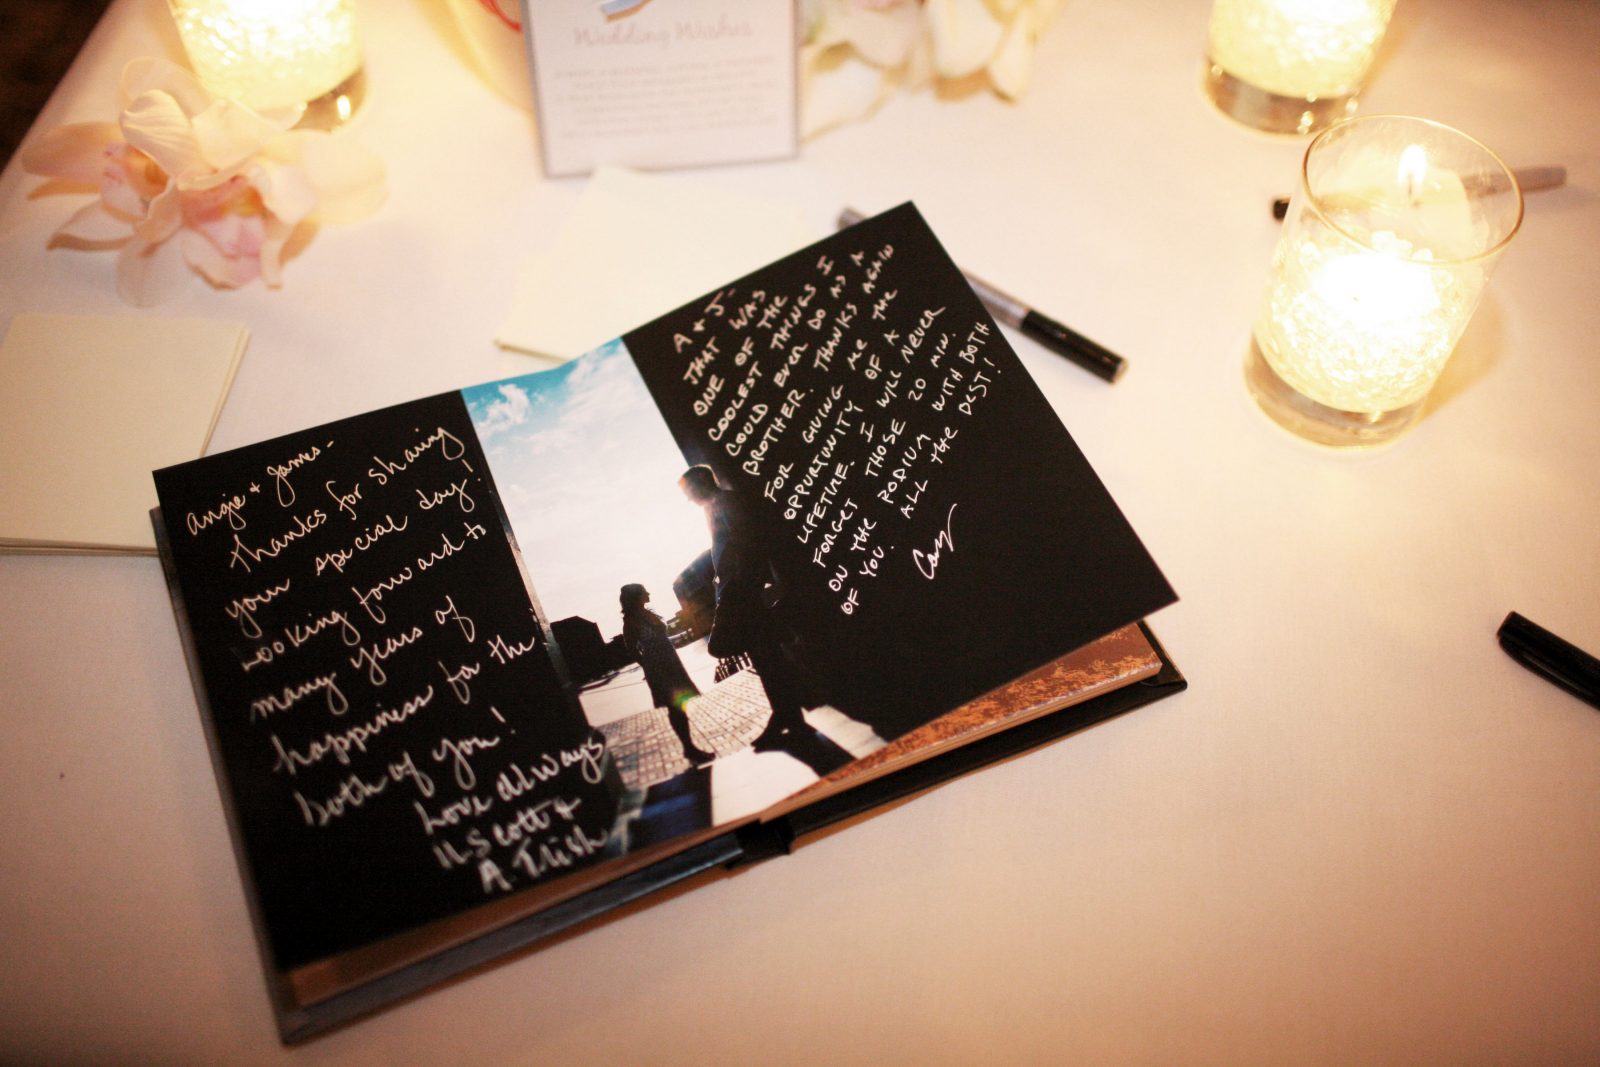 Wedding Wishes
Angie + James-
Thanks for sharing
your special day!
Looking forward to
many years of
happiness for the
both of you!
Love always
U. Scott +
A. Trish
A + J-
THAT WAS
ONE OF THE
COOLEST THINGS I
COULD EVER DO AS A
BROTHER. THANKS AGAIN
FOR GIVING ME THE
OPPURTUNITY OF A
LIFETIME. I WILL NEVER
FORGET THOSE 20 MIN.
ON THE PODIUM WITH BOTH
OF YOU. ALL THE BEST!